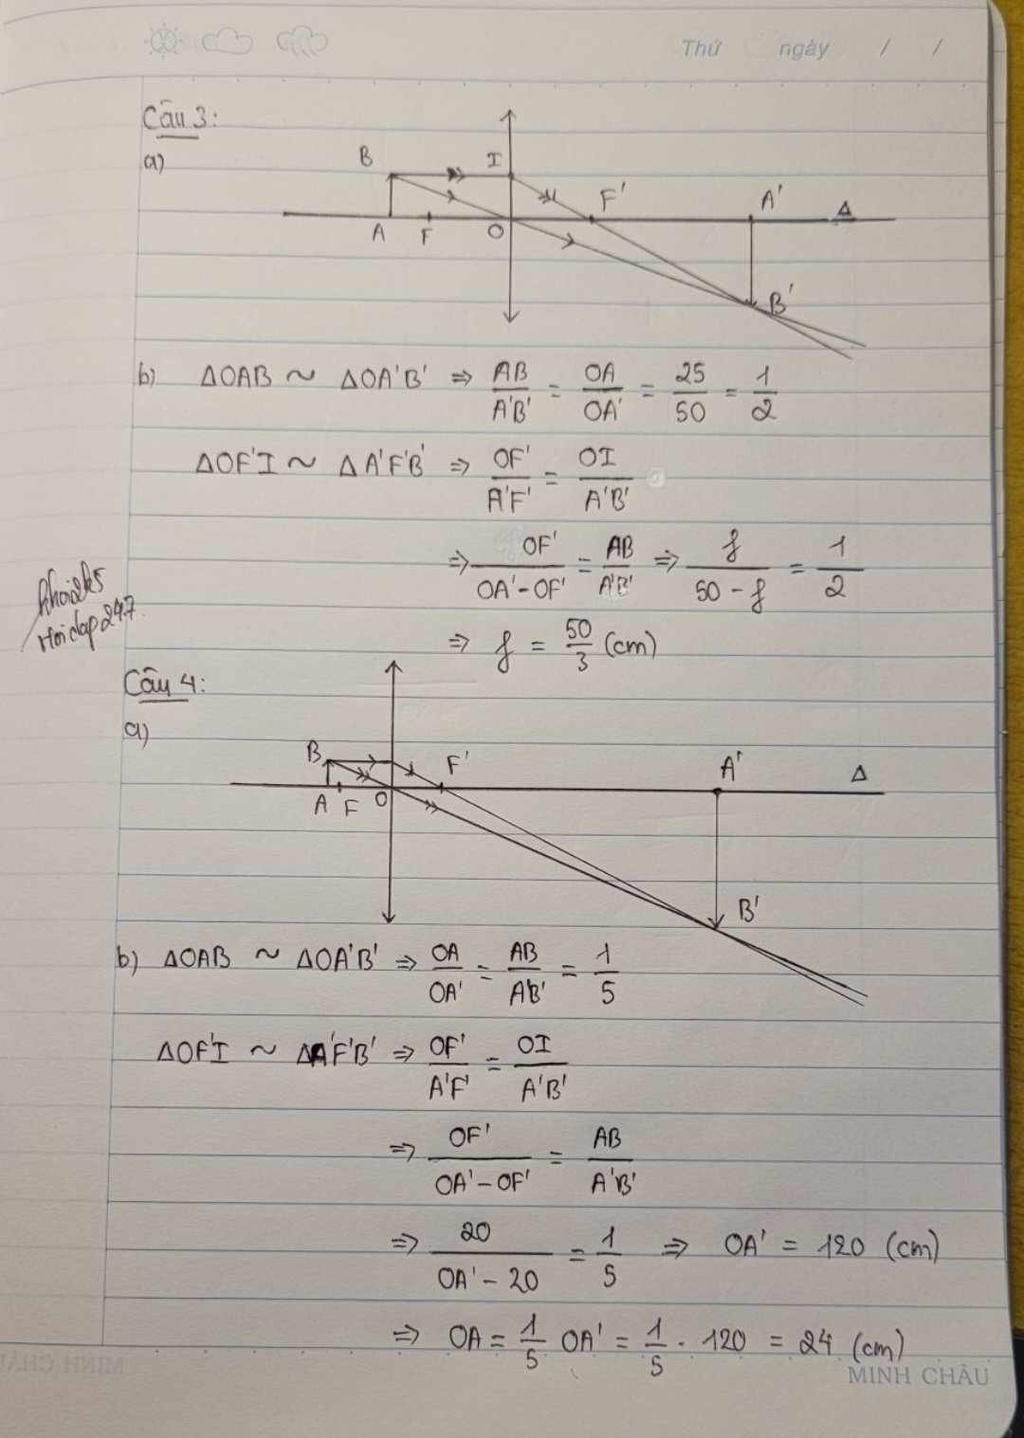 Thứ ngày / /
Câu 3:
a)
B I F' A' Δ
A F O B'
b) ΔOAB ~ ΔOA'B' => AB/A'B' = OA/OA' = 25/50 = 1/2
ΔOF'I ~ ΔA'F'B' => OF'/A'F' = OI/A'B'
=> OF'/(OA'-OF') = AB/A'B' => f/(50-f) = 1/2
=> f = 50/3 (cm)
Hoidap247
Câu 4:
a)
B F' A' Δ
A F O B'
b) ΔOAB ~ ΔOA'B' => OA/OA' = AB/A'B' = 1/5
ΔOF'I ~ ΔA'F'B' => OF'/A'F' = OI/A'B'
=> OF'/(OA'-OF') = AB/A'B'
=> 20/(OA'-20) = 1/5 => OA' = 120 (cm)
=> OA = 1/5 OA' = 1/5 . 120 = 24 (cm)
MINH CHÂU